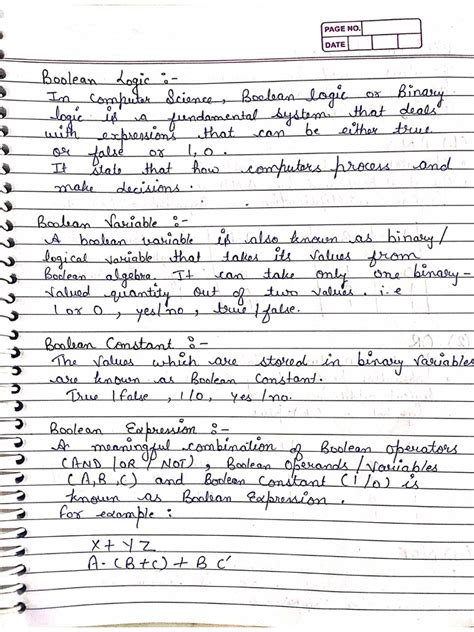 PAGE NO.
DATE
Boolean Logic :-
In Computer Science, Boolean logic or Binary
logic is a fundamental system that deals
with expressions that can be either true
or false or 1, 0.
It state that how computers process and
make decisions.
Boolean Variable :-
A boolean variable is also known as binary/
logical variable that takes its values from
Boolean algebra. It can take only one binary-
valued quantity out of two values. i.e
1 or 0, yes/no, true/false.
Boolean Constant :-
The values which are stored in binary variables
are known as Boolean Constant.
True/False, 1/0, Yes/no.
Boolean Expression :-
A meaningful combination of Boolean operators
(AND/OR/NOT), Boolean Operands/Variables
(A,B,C) and Boolean Constant (1/0) is
known as Boolean Expression.
for example :
X+YZ
A·(B+C)+BC'